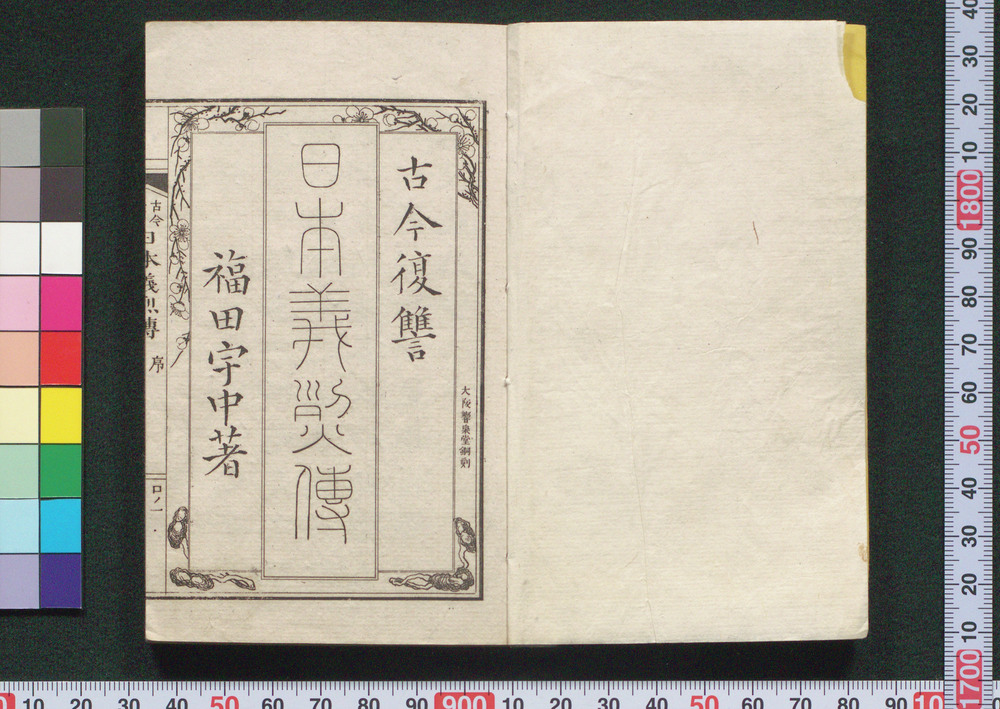 古今復讐
日本義烈傳
福田宇中著
大阪響泉堂銅刻
古今
日本義烈傳
序
口ノ一
10 20 30 40 50 60 70 80 90 900 10 20 30 40 50 60 70 80 90 10
40 30 20 10 1800 90 80 70 60 50 40 30 20 10 1700